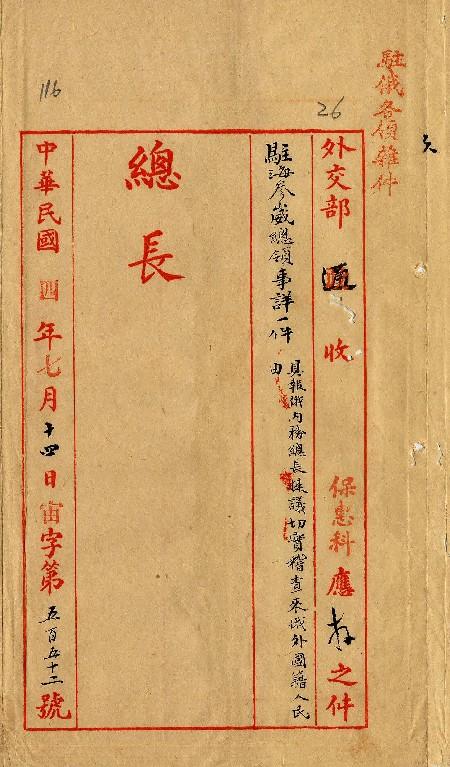 116
26
駐俄各領雜件
外交部 收 保惠科應存之件
駐海參崴總領事詳一件
具報俄內務總長 議切實稽查來俄外國籍人民
由
總長
中華民國四年七月十四日宙字第五百五十二號